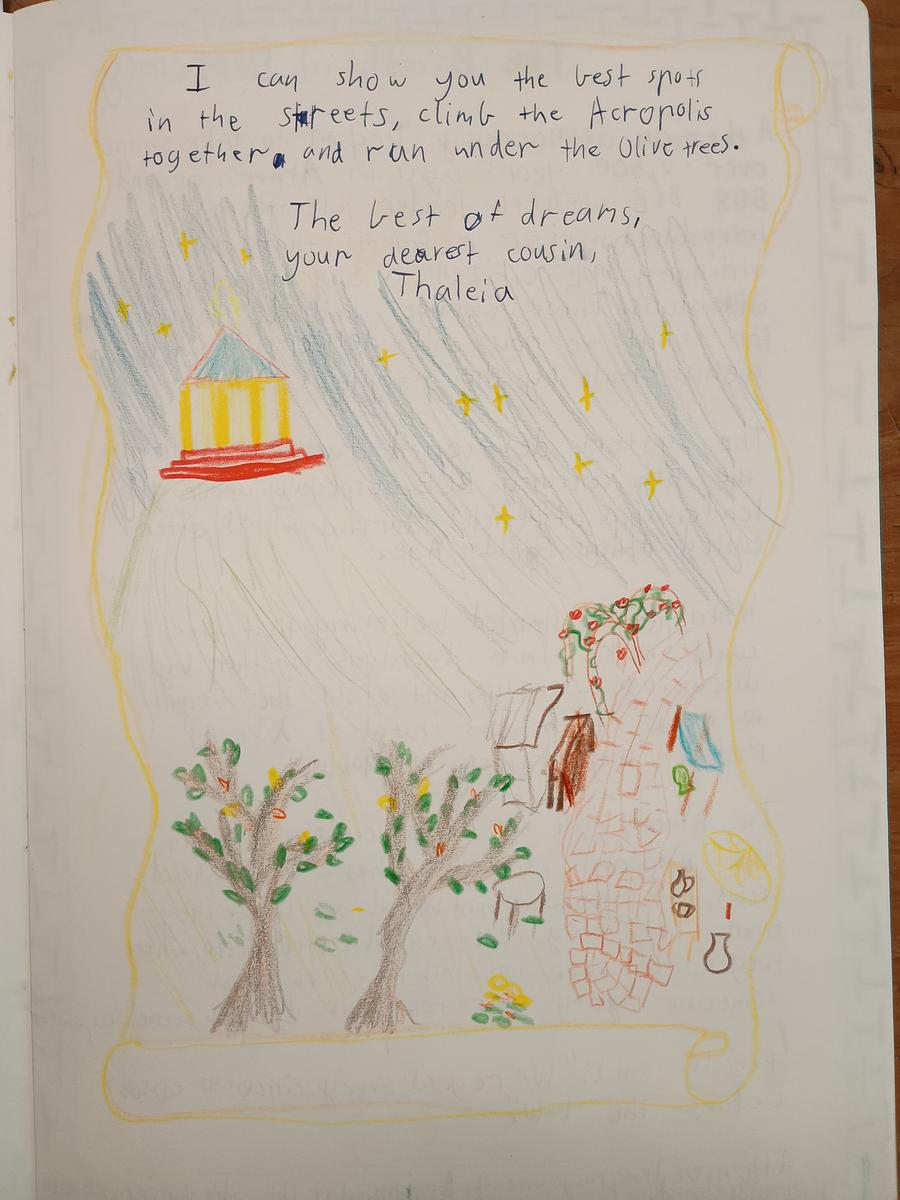 I can show you the best spots
in the streets, climb the Acropolis
together, and run under the Olive trees.
The best of dreams,
your dearest cousin,
Thaleia